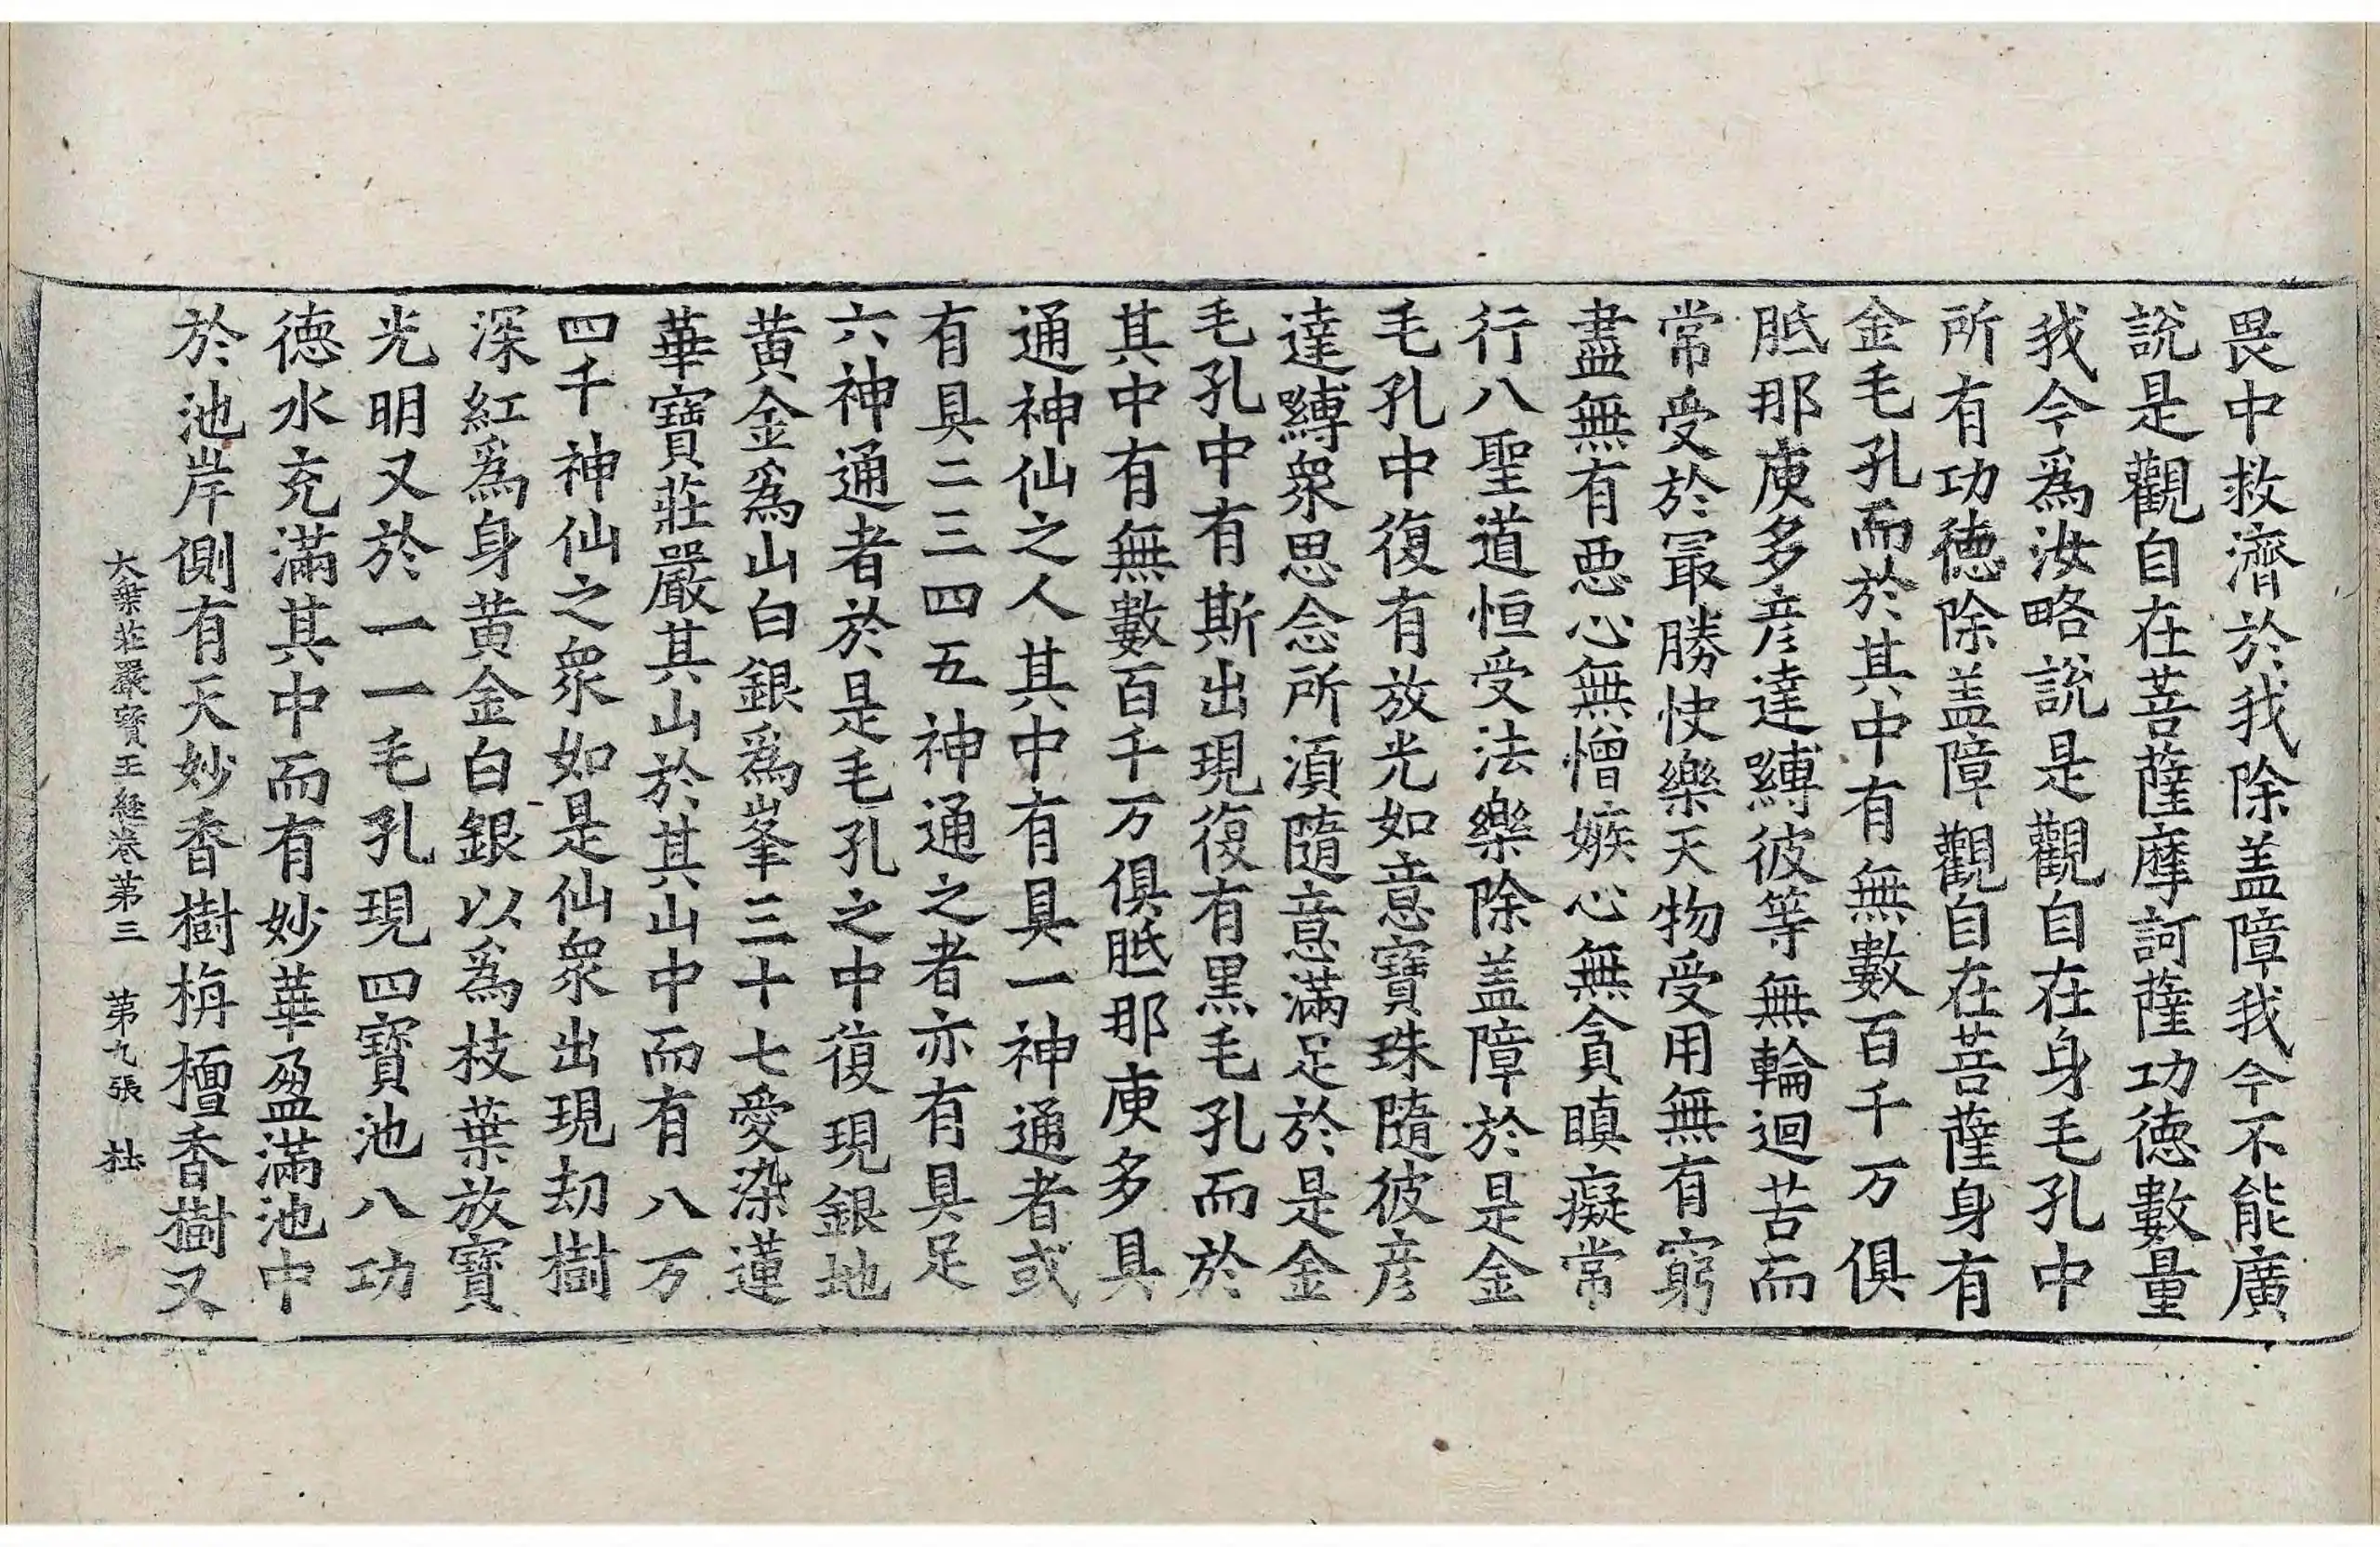 畏中救濟於我除盖障我今不能廣
說是觀自在菩薩摩訶薩功德數量
我今爲汝略說是觀自在身毛孔中
所有功德除盖障觀自在菩薩身有
金毛孔而於其中有無數百千万俱
胝那庾多彦達嚩彼等無輪迴苦而
常受於最勝快樂天物受用無有窮
盡無有惡心無憎嫉心無貪瞋癡常
行八聖道恒受法樂除盖障於是金
毛孔中復有放光如意寶珠隨彼彦
達嚩衆思念所須隨意滿足於是金
毛孔中有斯出現復有黑毛孔而於
其中有無數百千万俱胝那庾多具
通神仙之人其中有具一神通者或
有具二三四五神通之者亦有具足
六神通者於是毛孔之中復現銀地
黄金爲山白銀爲峯三十七愛染蓮
華寶莊嚴其山於其山中而有八万
四千神仙之衆如是仙衆出現劫樹
深紅爲身黄金白銀以爲枝葉放寶
光明又於一一毛孔現四寶池八功
德水充滿其中而有妙華盈滿池中
於池岸側有天妙香樹栴檀香樹又
大乗莊嚴寶王經卷第三 第九張